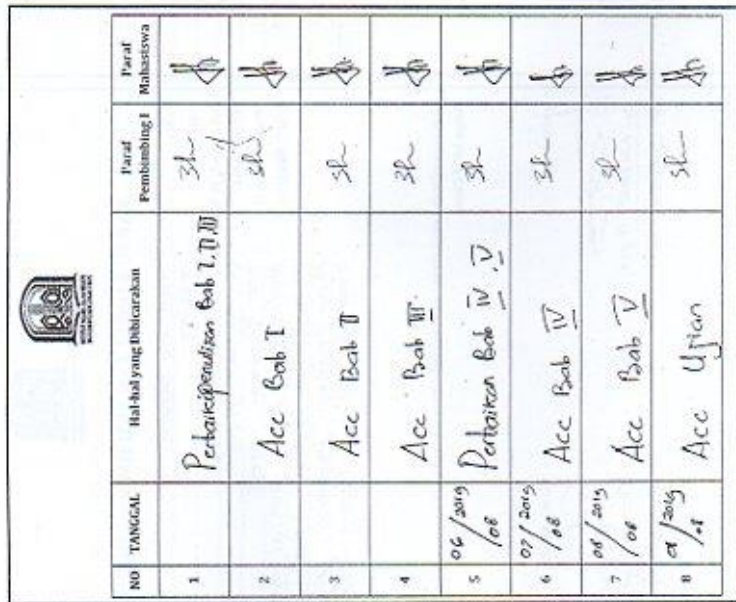 NO TANGGAL Hal-hal yang Dibicarakan Paraf Pembimbing I Paraf Mahasiswa
1 Perbaiki penulisan Bab I, II, III
2 Acc Bab I
3 Acc Bab II
4 Acc Bab III
5 06/2019 /08 Perbaikan Bab IV, V
6 07/2019 /08 Acc Bab IV
7 08/2019 /08 Acc Bab V
8 Acc Ujian